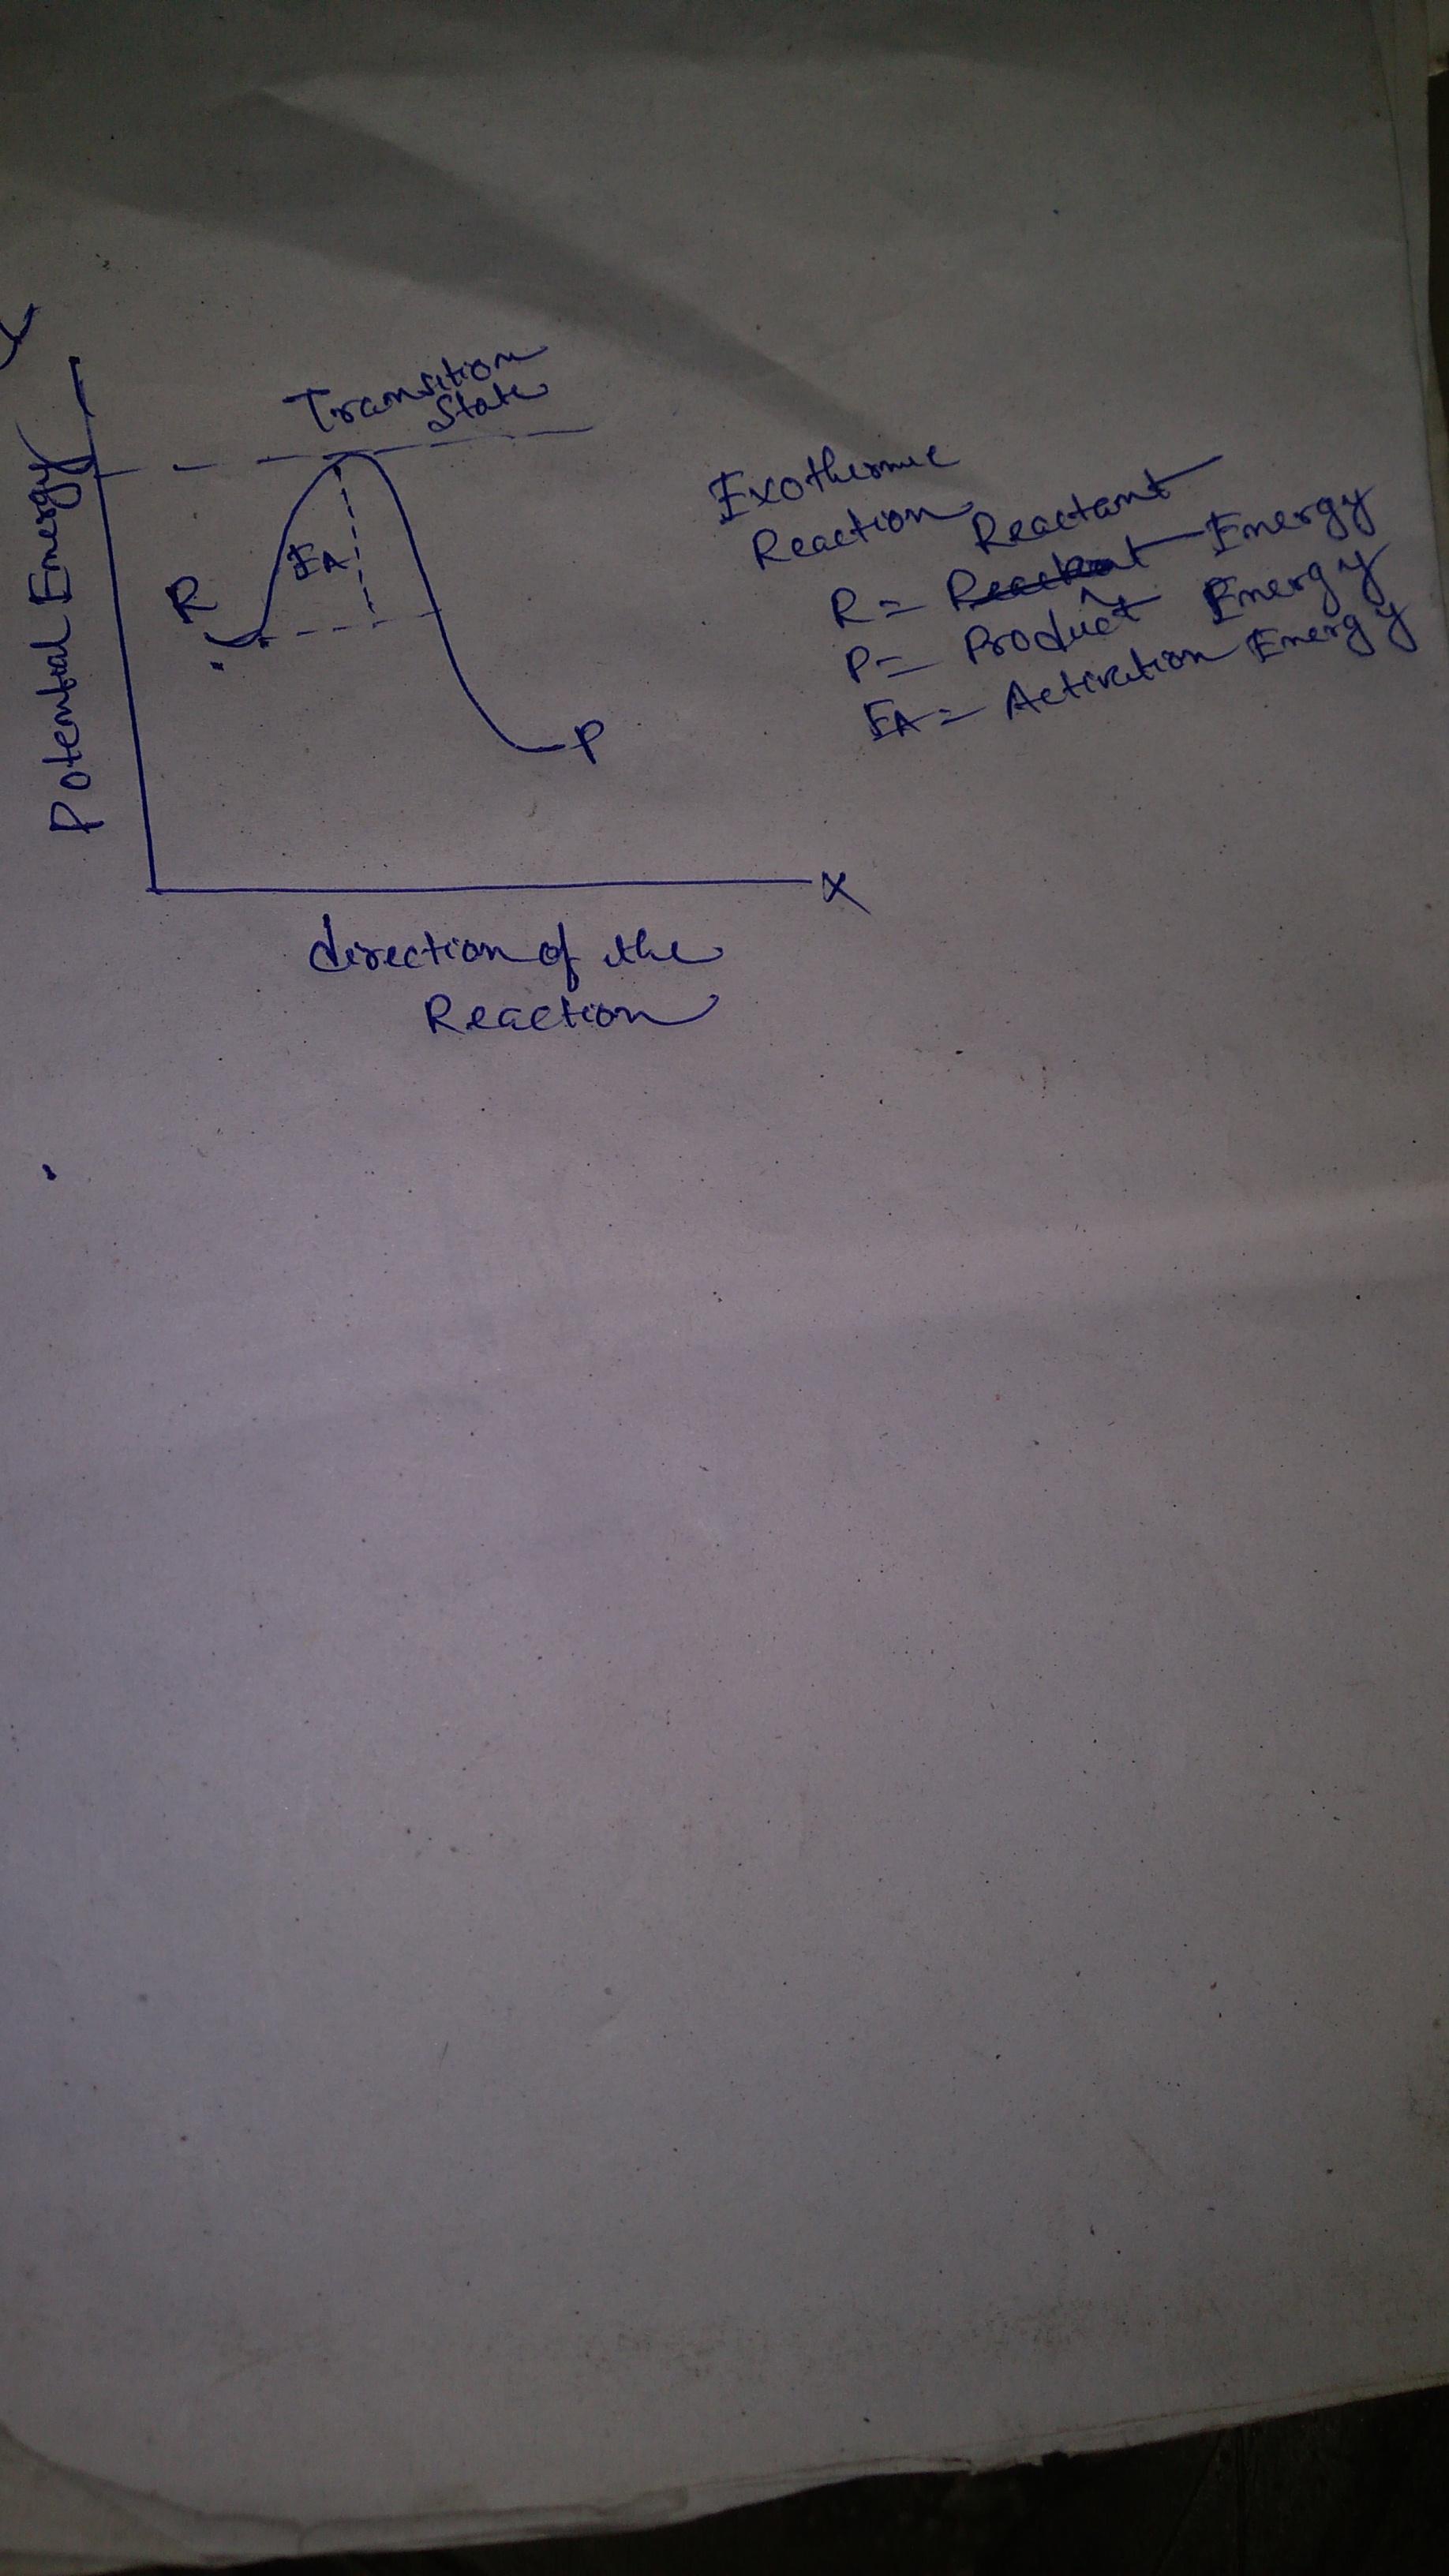 Y
Transition
State
Potential Energy
EA
R
P
X
direction of the
Reaction
Exothermic
Reaction
Reactant
R = Energy
P = Product Energy
EA = Activation Energy